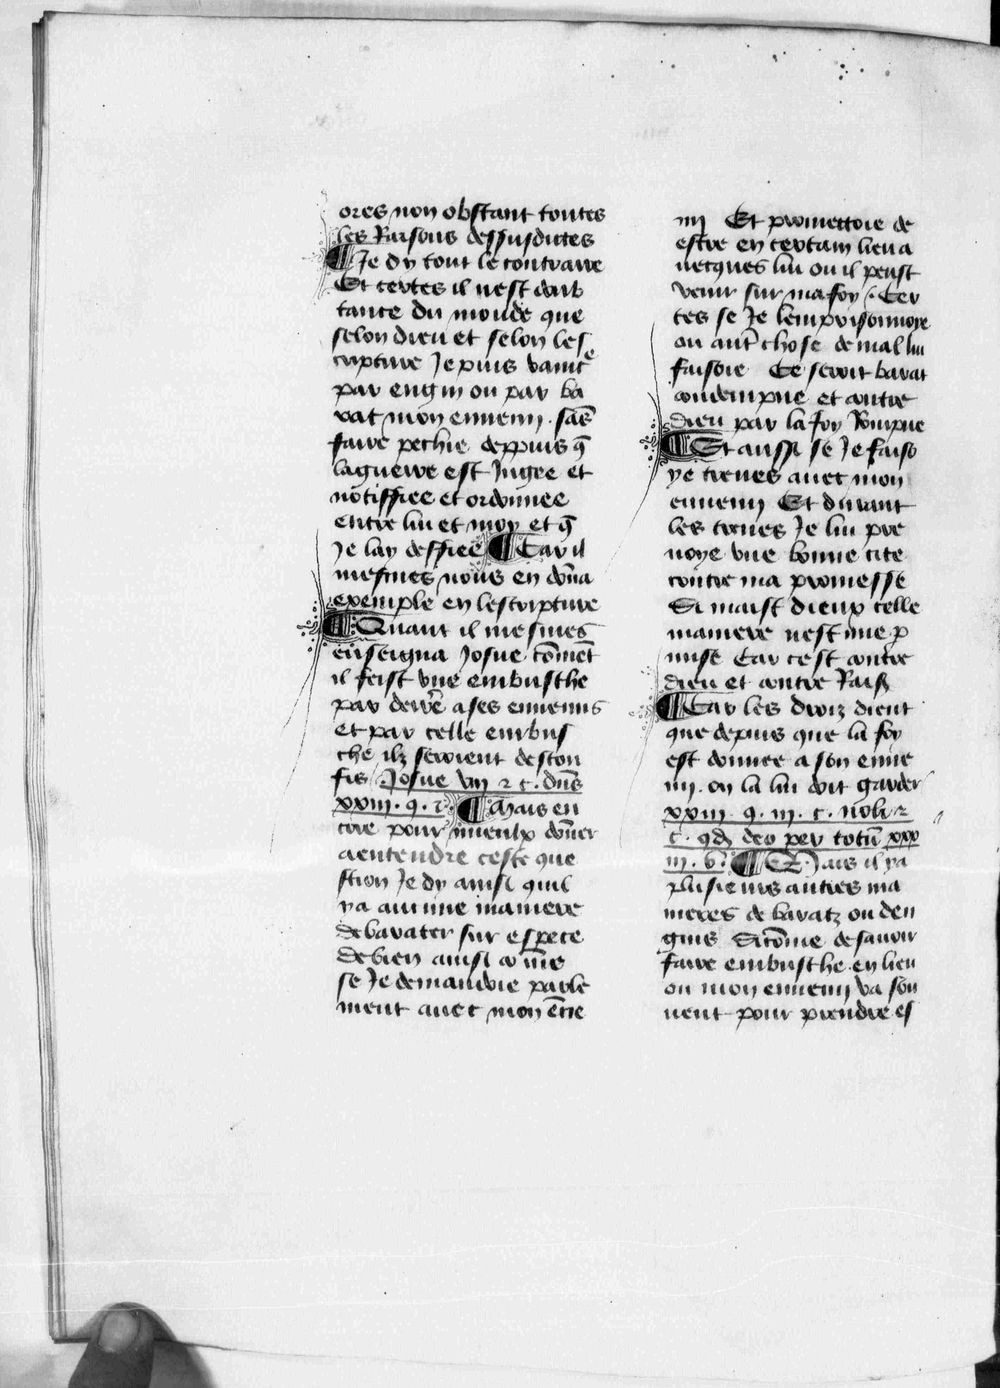 ores non obstant toutes
les Raisons dessusdictes
¶ Je dy tout le contraire
Et certes il nest doub
tance du monde que
selon dieu et selon les
cripture Je puis vaincͤ
par engin ou par ba
rat mon ennemi . sās̄
faire pechie deppuis q̄
laguerre est Jugee et
notiffiee et ordonnee
entre lui et moy et q̄
Je lay deffiee ¶ Car il
mesmes nous en dōna
exemple en lescripture
¶ Quant il mesmes
enseigna Josue cōmēt
il feist vne embusche
par derrē a ses ennemis
et par celle embus
che ilz seroient descon
fis Josue viij ⁊ c . dn̄s
xxiij . q . ij . ¶ Mais en
core pour mieulx dōner
a entendre ceste que
stion Je dy ainsi quil
ya aucune maniere
de barater sur espece
de bien ainsi cō me
se Je demandoie parle
ment auec mon ēne
mj Et promettoie de
estre en certain lieu a
uecques lui ou il peust
venir sur ma foy . Cer
tes se Je lemprisonnoye
ou autr̄ chose de mal lui
faisoie Ce seroit barat
condempne et contre
dieu par la foy Rompue
¶ Et aussi se Je faiso
ye treues auec mon
ennemj Et durant
les treues Je lui pre
noye vne bonne cite
contre ma promesse
Si maist dieux celle
maniere nest mie ꝑ
mise Car cest contre
dieu et contre Raisō
¶ Car les droiz dient
que depuis que la foy
est donnee a son enne
mj . on la lui doit garder
xxiij . q . iij . c . noli ⁊
c . qd̄ deo per totū xxx
iij . ¶ Mais il ya
plusieurs autres ma
nieres de baratz ou den
gins Sicōme de sauoir
faire embusche en lieu
ou mon ennemj va sou
uent pour prendre es